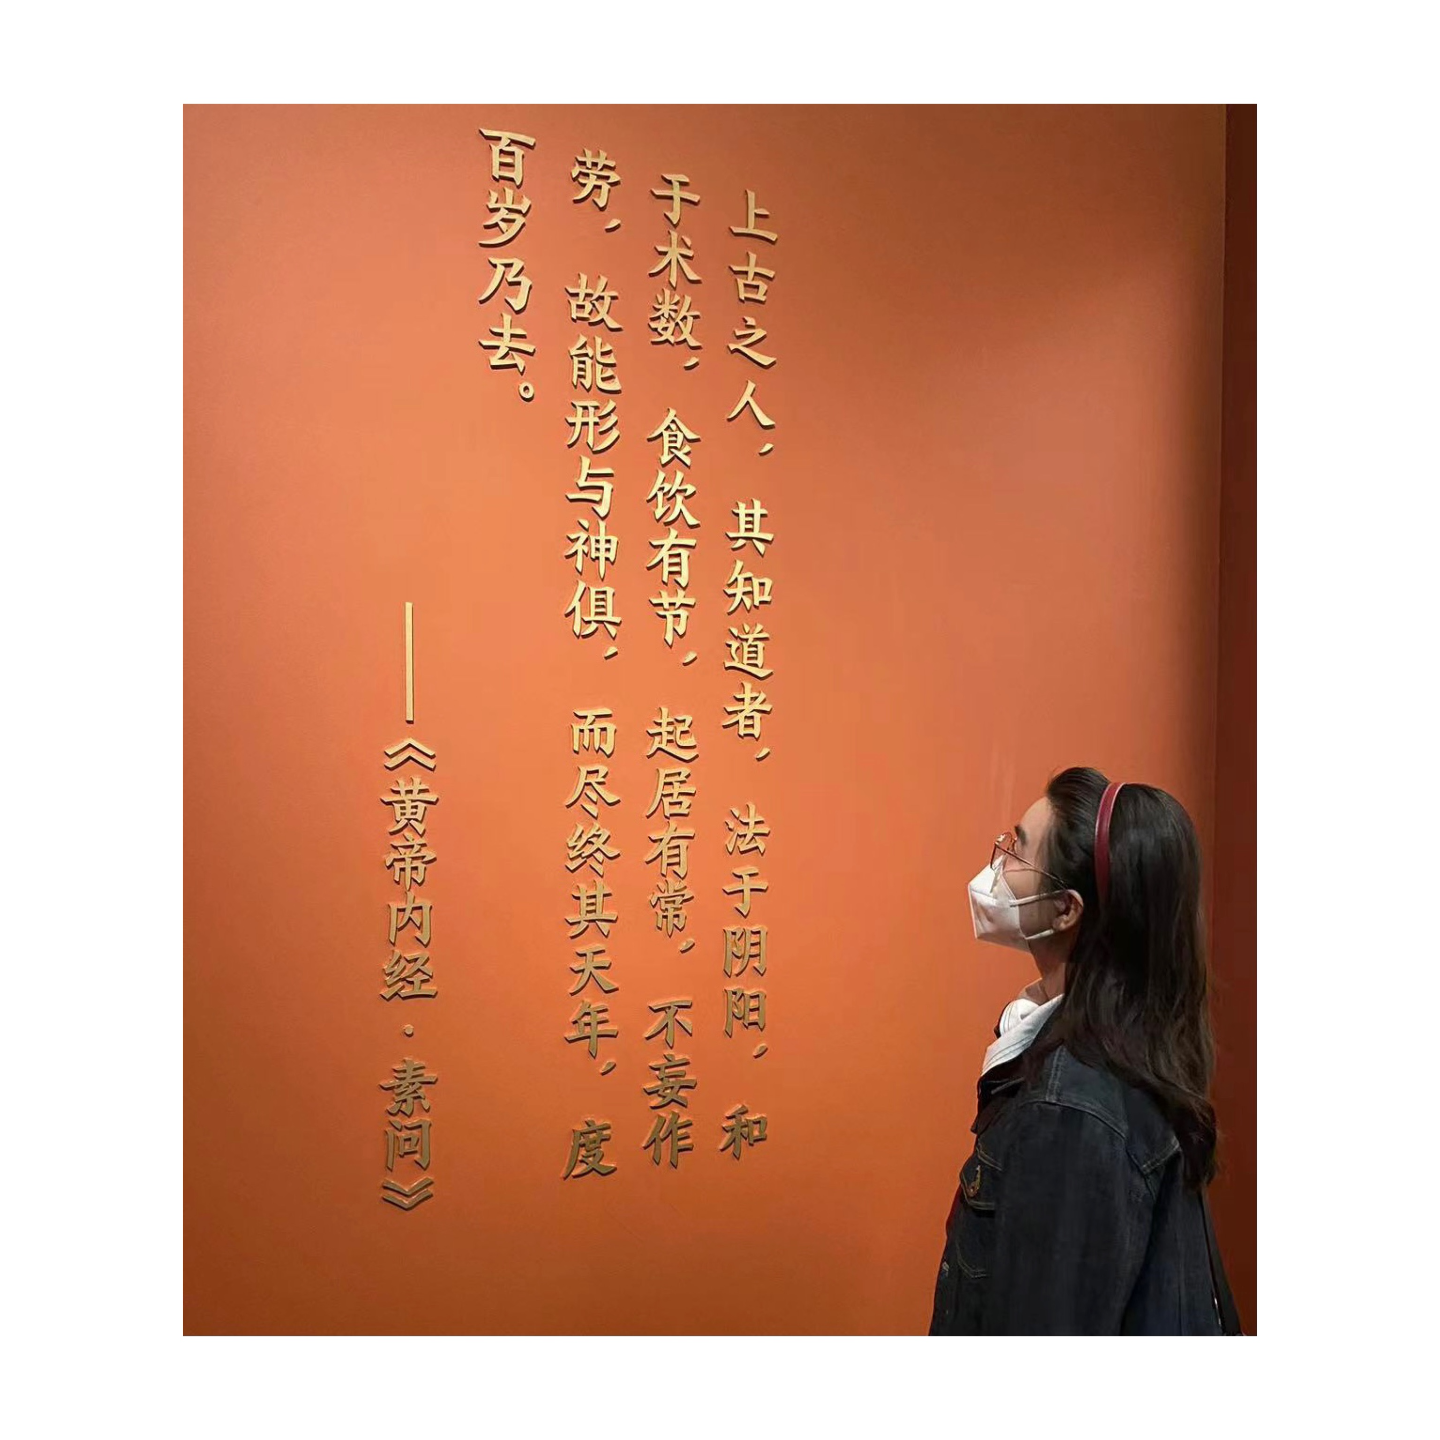 上古之人，其知道者，法于阴阳，和
于术数，食饮有节，起居有常，不妄作
劳，故能形与神俱，而尽终其天年，度
百岁乃去。
——《黄帝内经·素问》